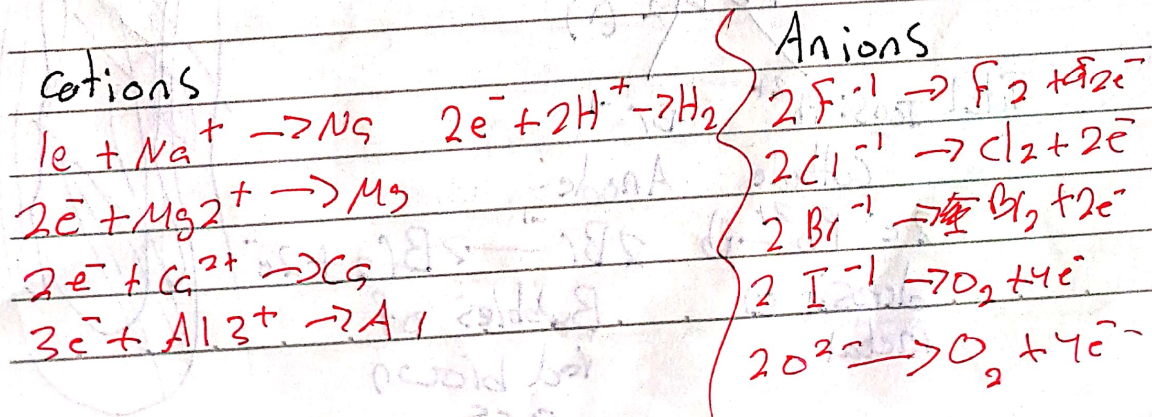 Cations
1e + Na⁺ → Na 2e⁻ + 2H⁺ → H₂
2e⁻ + Mg2⁺ → Mg
2e⁻ + Ca²⁺ → Ca
3e⁻ + Al3⁺ → Al
Anions
2F⁻¹ → F₂ + 2e⁻
2Cl⁻¹ → Cl₂ + 2e⁻
2Br⁻¹ → Br₂ + 2e⁻
2I⁻¹ → O₂ + 4e⁻
2O²⁻ → O₂ + 4e⁻